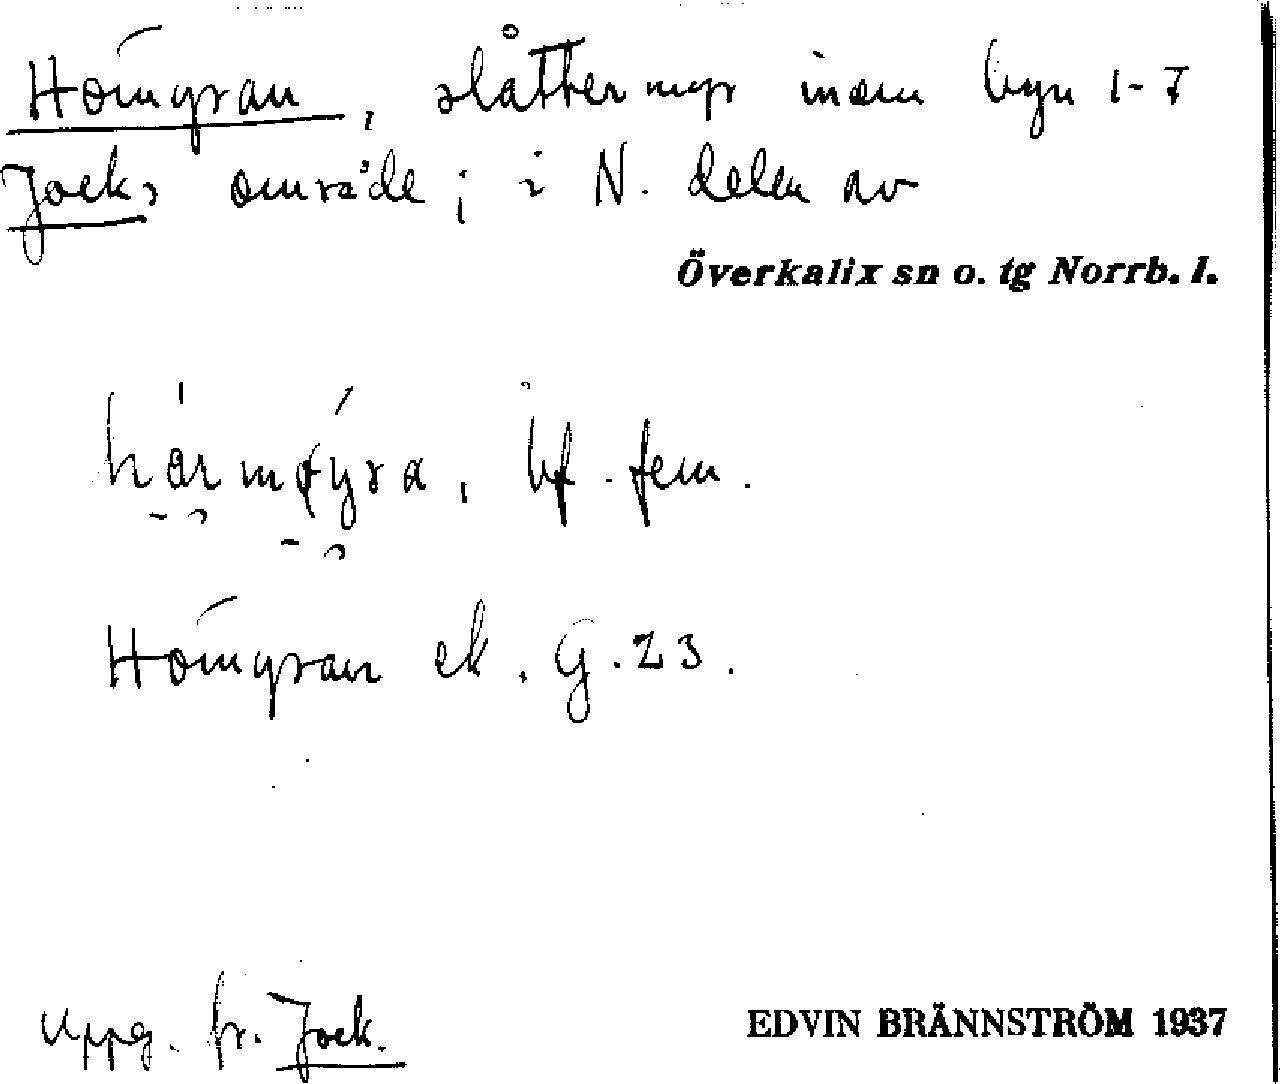 Hömyran, slåttermyr inom byn 1-7
Jocks område; i N. delen av
Överkalix sn o. tg Norrb. l.
bf. fem.
Hömyran ek. G. 23.
Uppg. fr. Jock.
EDVIN BRÄNNSTRÖM 1937